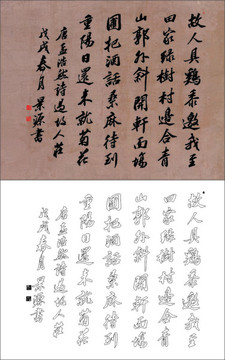 故人具鷄黍邀我至
田家綠樹村邊合青
山郭外斜開軒面場
圃把酒話桑麻待到
重陽日還來就菊花
唐孟浩然詩過故人莊
戊戌春月景源書
故人具鷄黍邀我至
田家綠樹村邊合青
山郭外斜開軒面場
圃把酒話桑麻待到
重陽日還來就菊花
唐孟浩然詩過故人莊
戊戌春月景源書